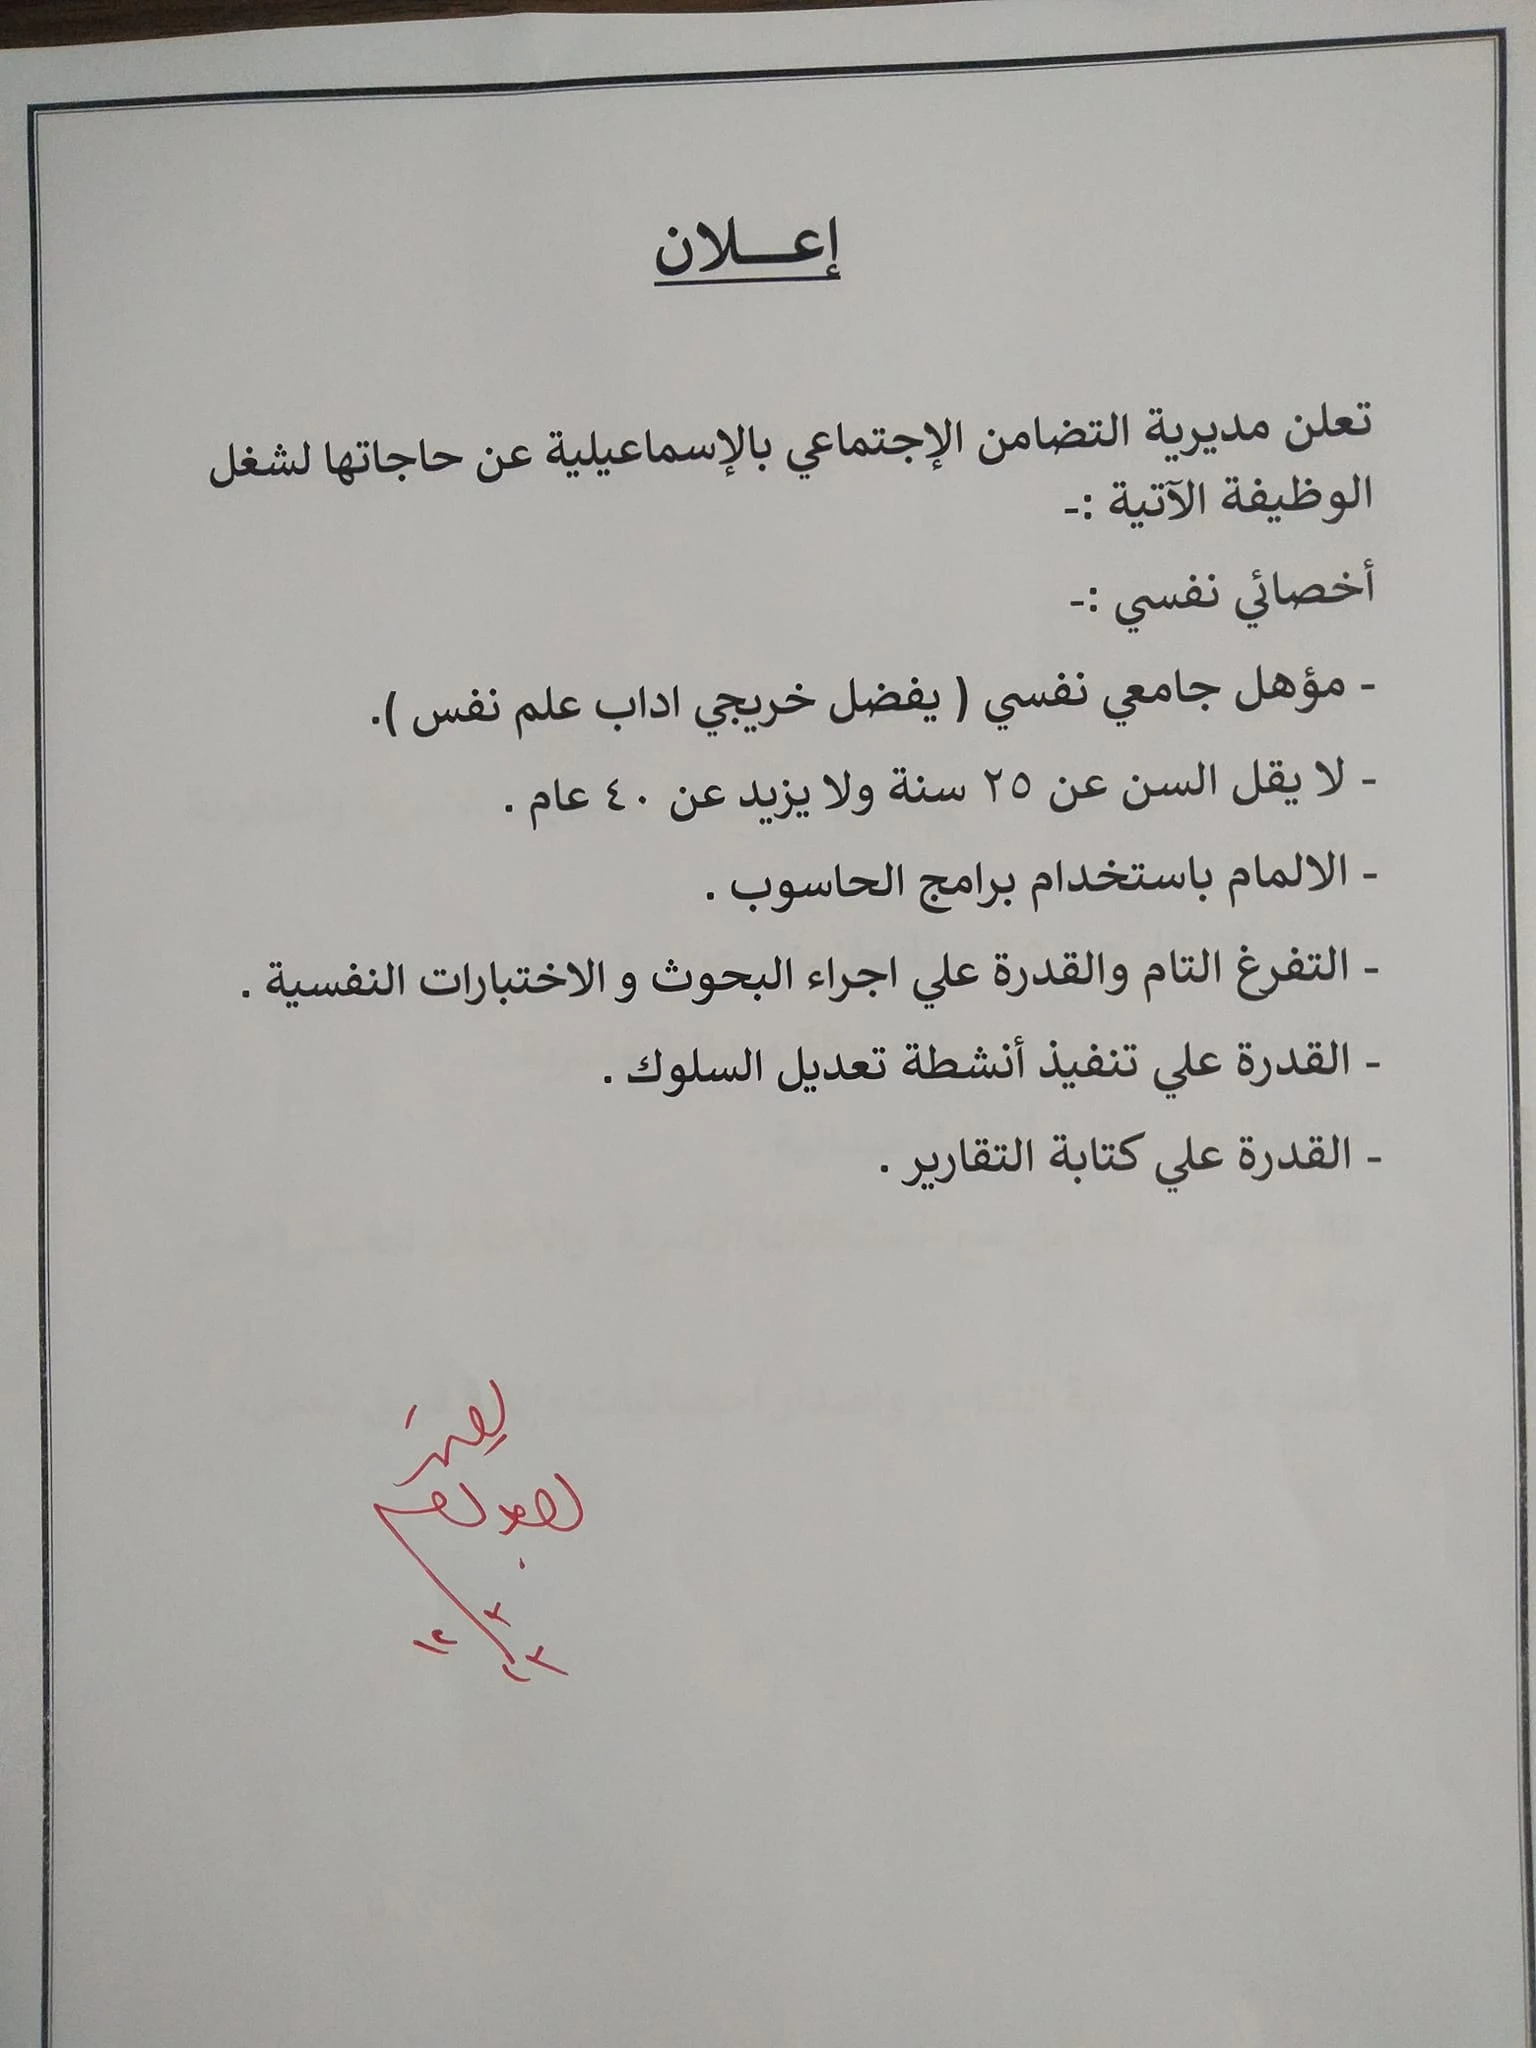 إعـــلان
تعلن مديرية التضامن الإجتماعي بالإسماعيلية عن حاجاتها لشغل
الوظيفة الآتية :-
أخصائي نفسي :-
- مؤهل جامعي نفسي ( يفضل خريجي اداب علم نفس ).
- لا يقل السن عن ٢٥ سنة ولا يزيد عن ٤٠ عام .
- الالمام باستخدام برامج الحاسوب .
- التفرغ التام والقدرة علي اجراء البحوث و الاختبارات النفسية .
- القدرة علي تنفيذ أنشطة تعديل السلوك .
- القدرة علي كتابة التقارير .